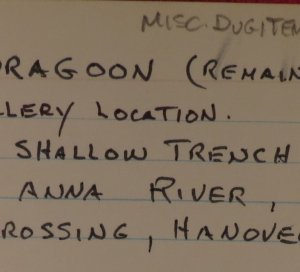 MISC. DUG ITEM
DRAGOON (REMAIN
LLERY LOCATION.
SHALLOW TRENCH
ANNA RIVER,
ROSSING, HANOVE